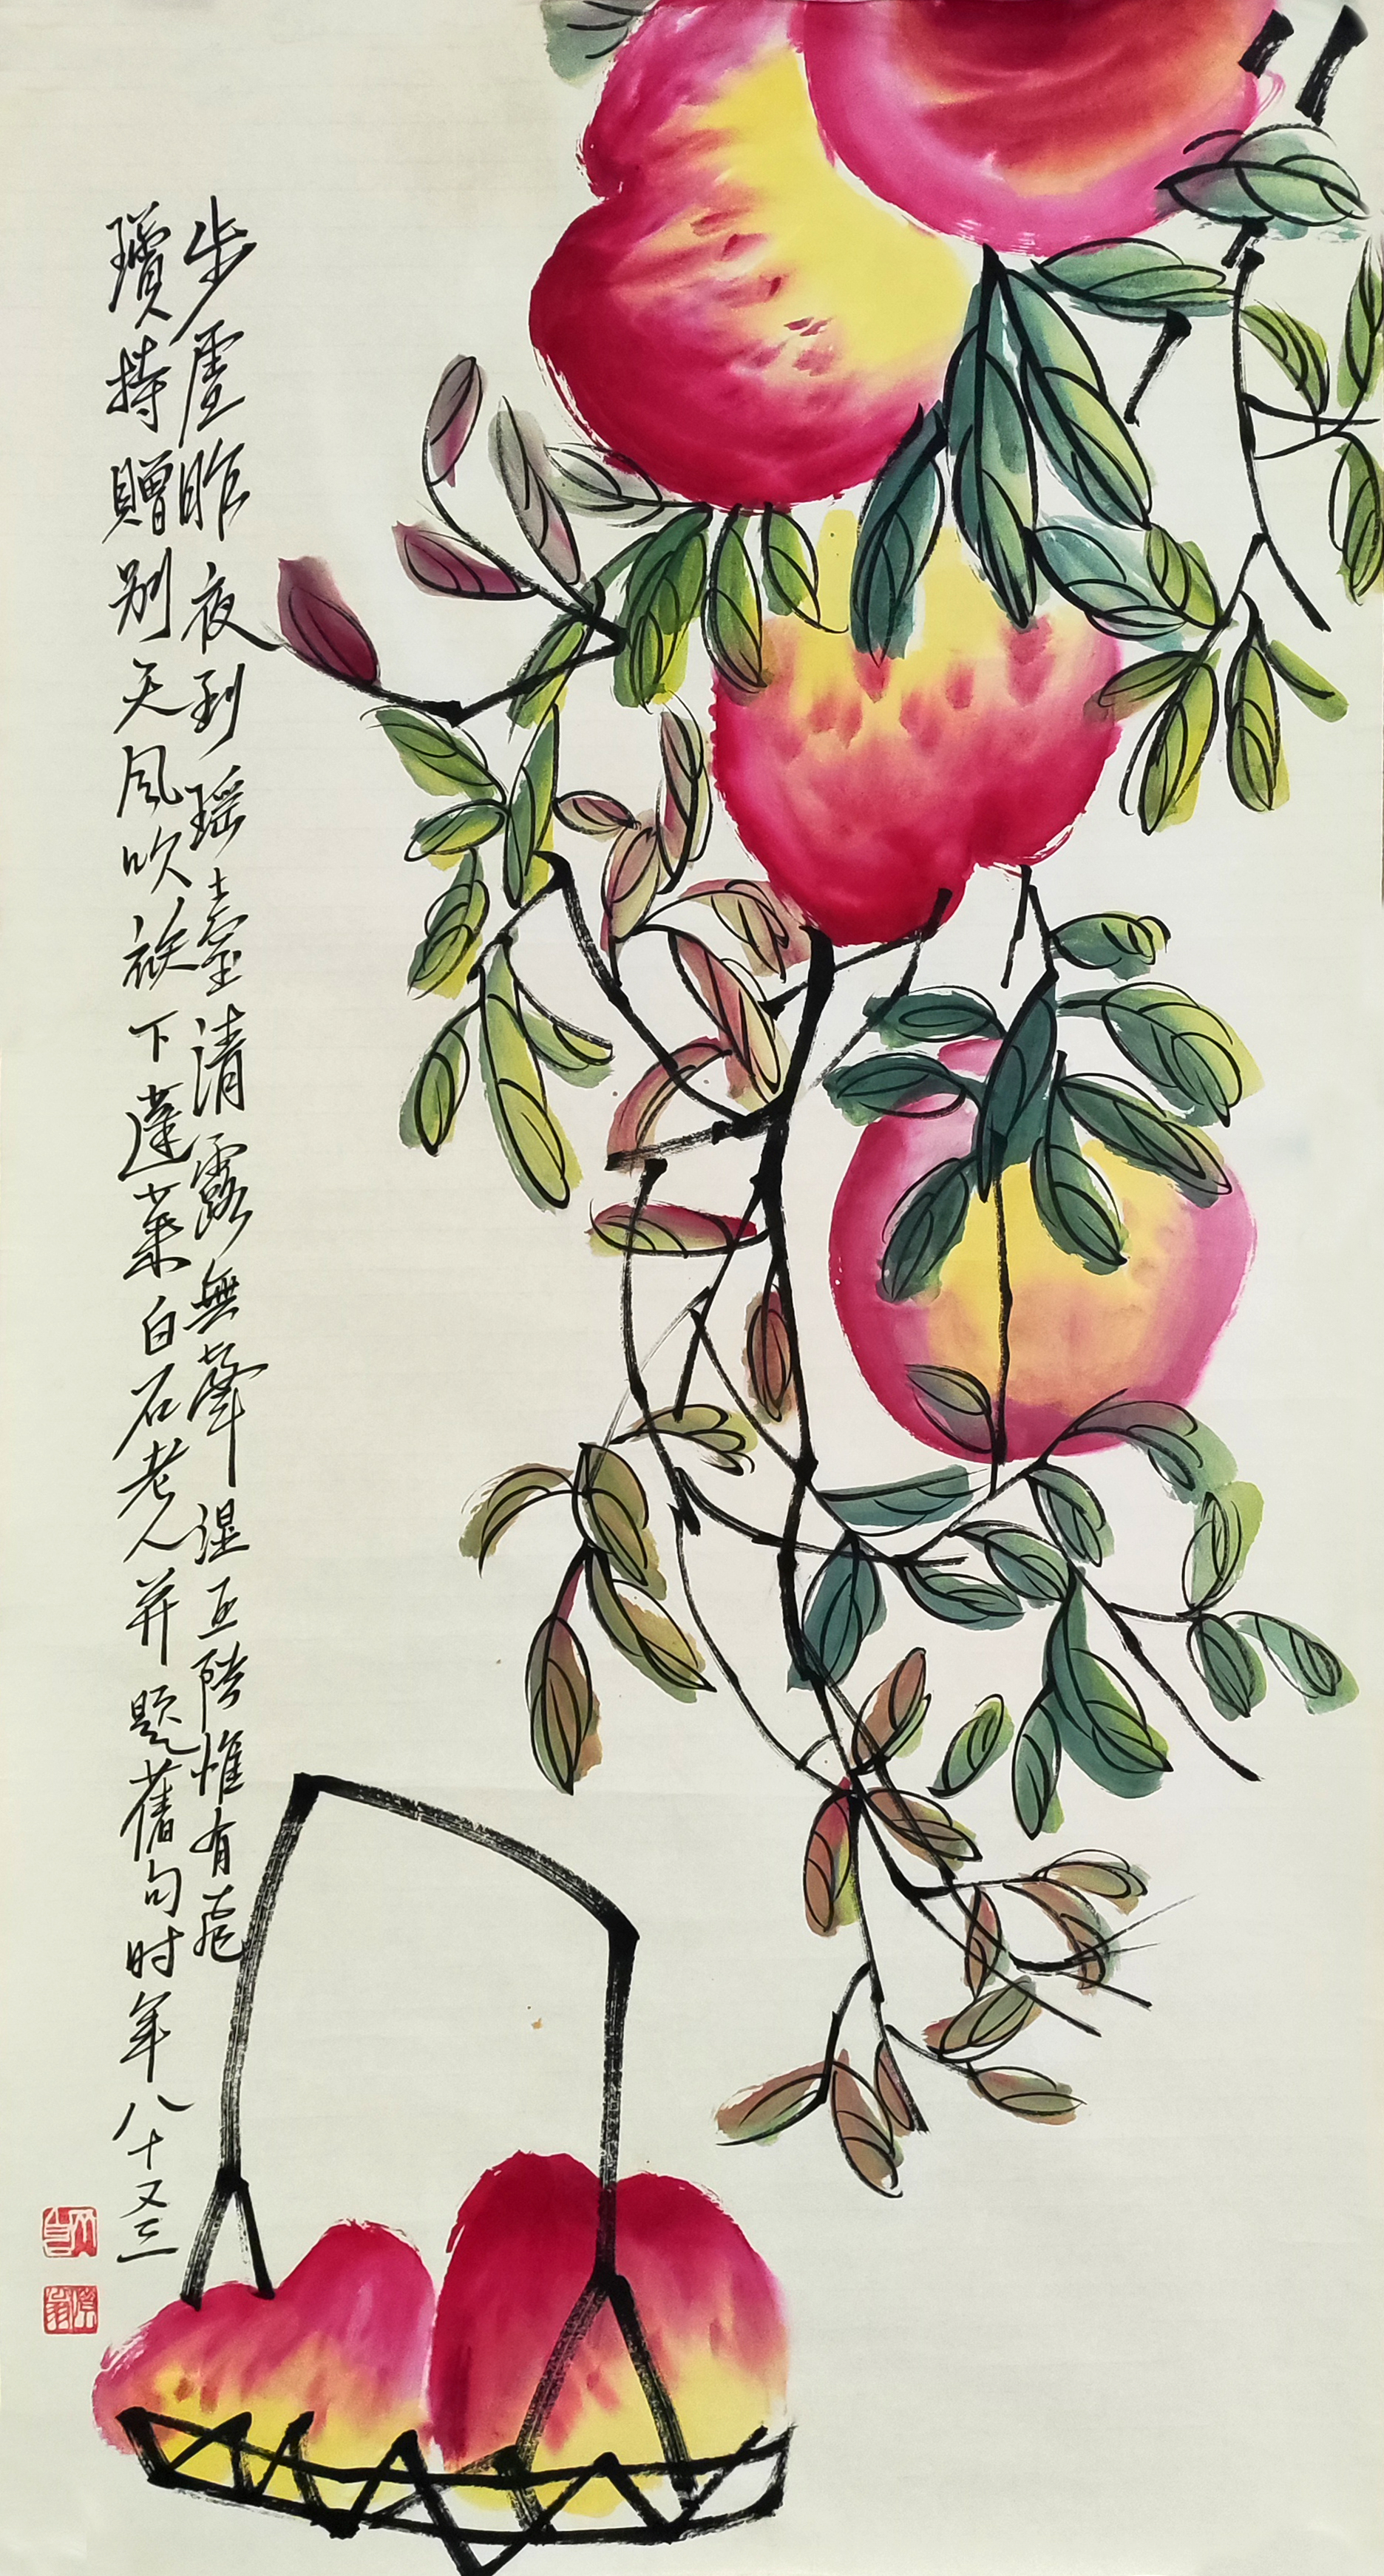 步虛昨夜到瑶臺清露無聲湿玉階惟有飛
瓊持贈别天風吹袂下蓬萊白石老人并題舊句时年八十又三